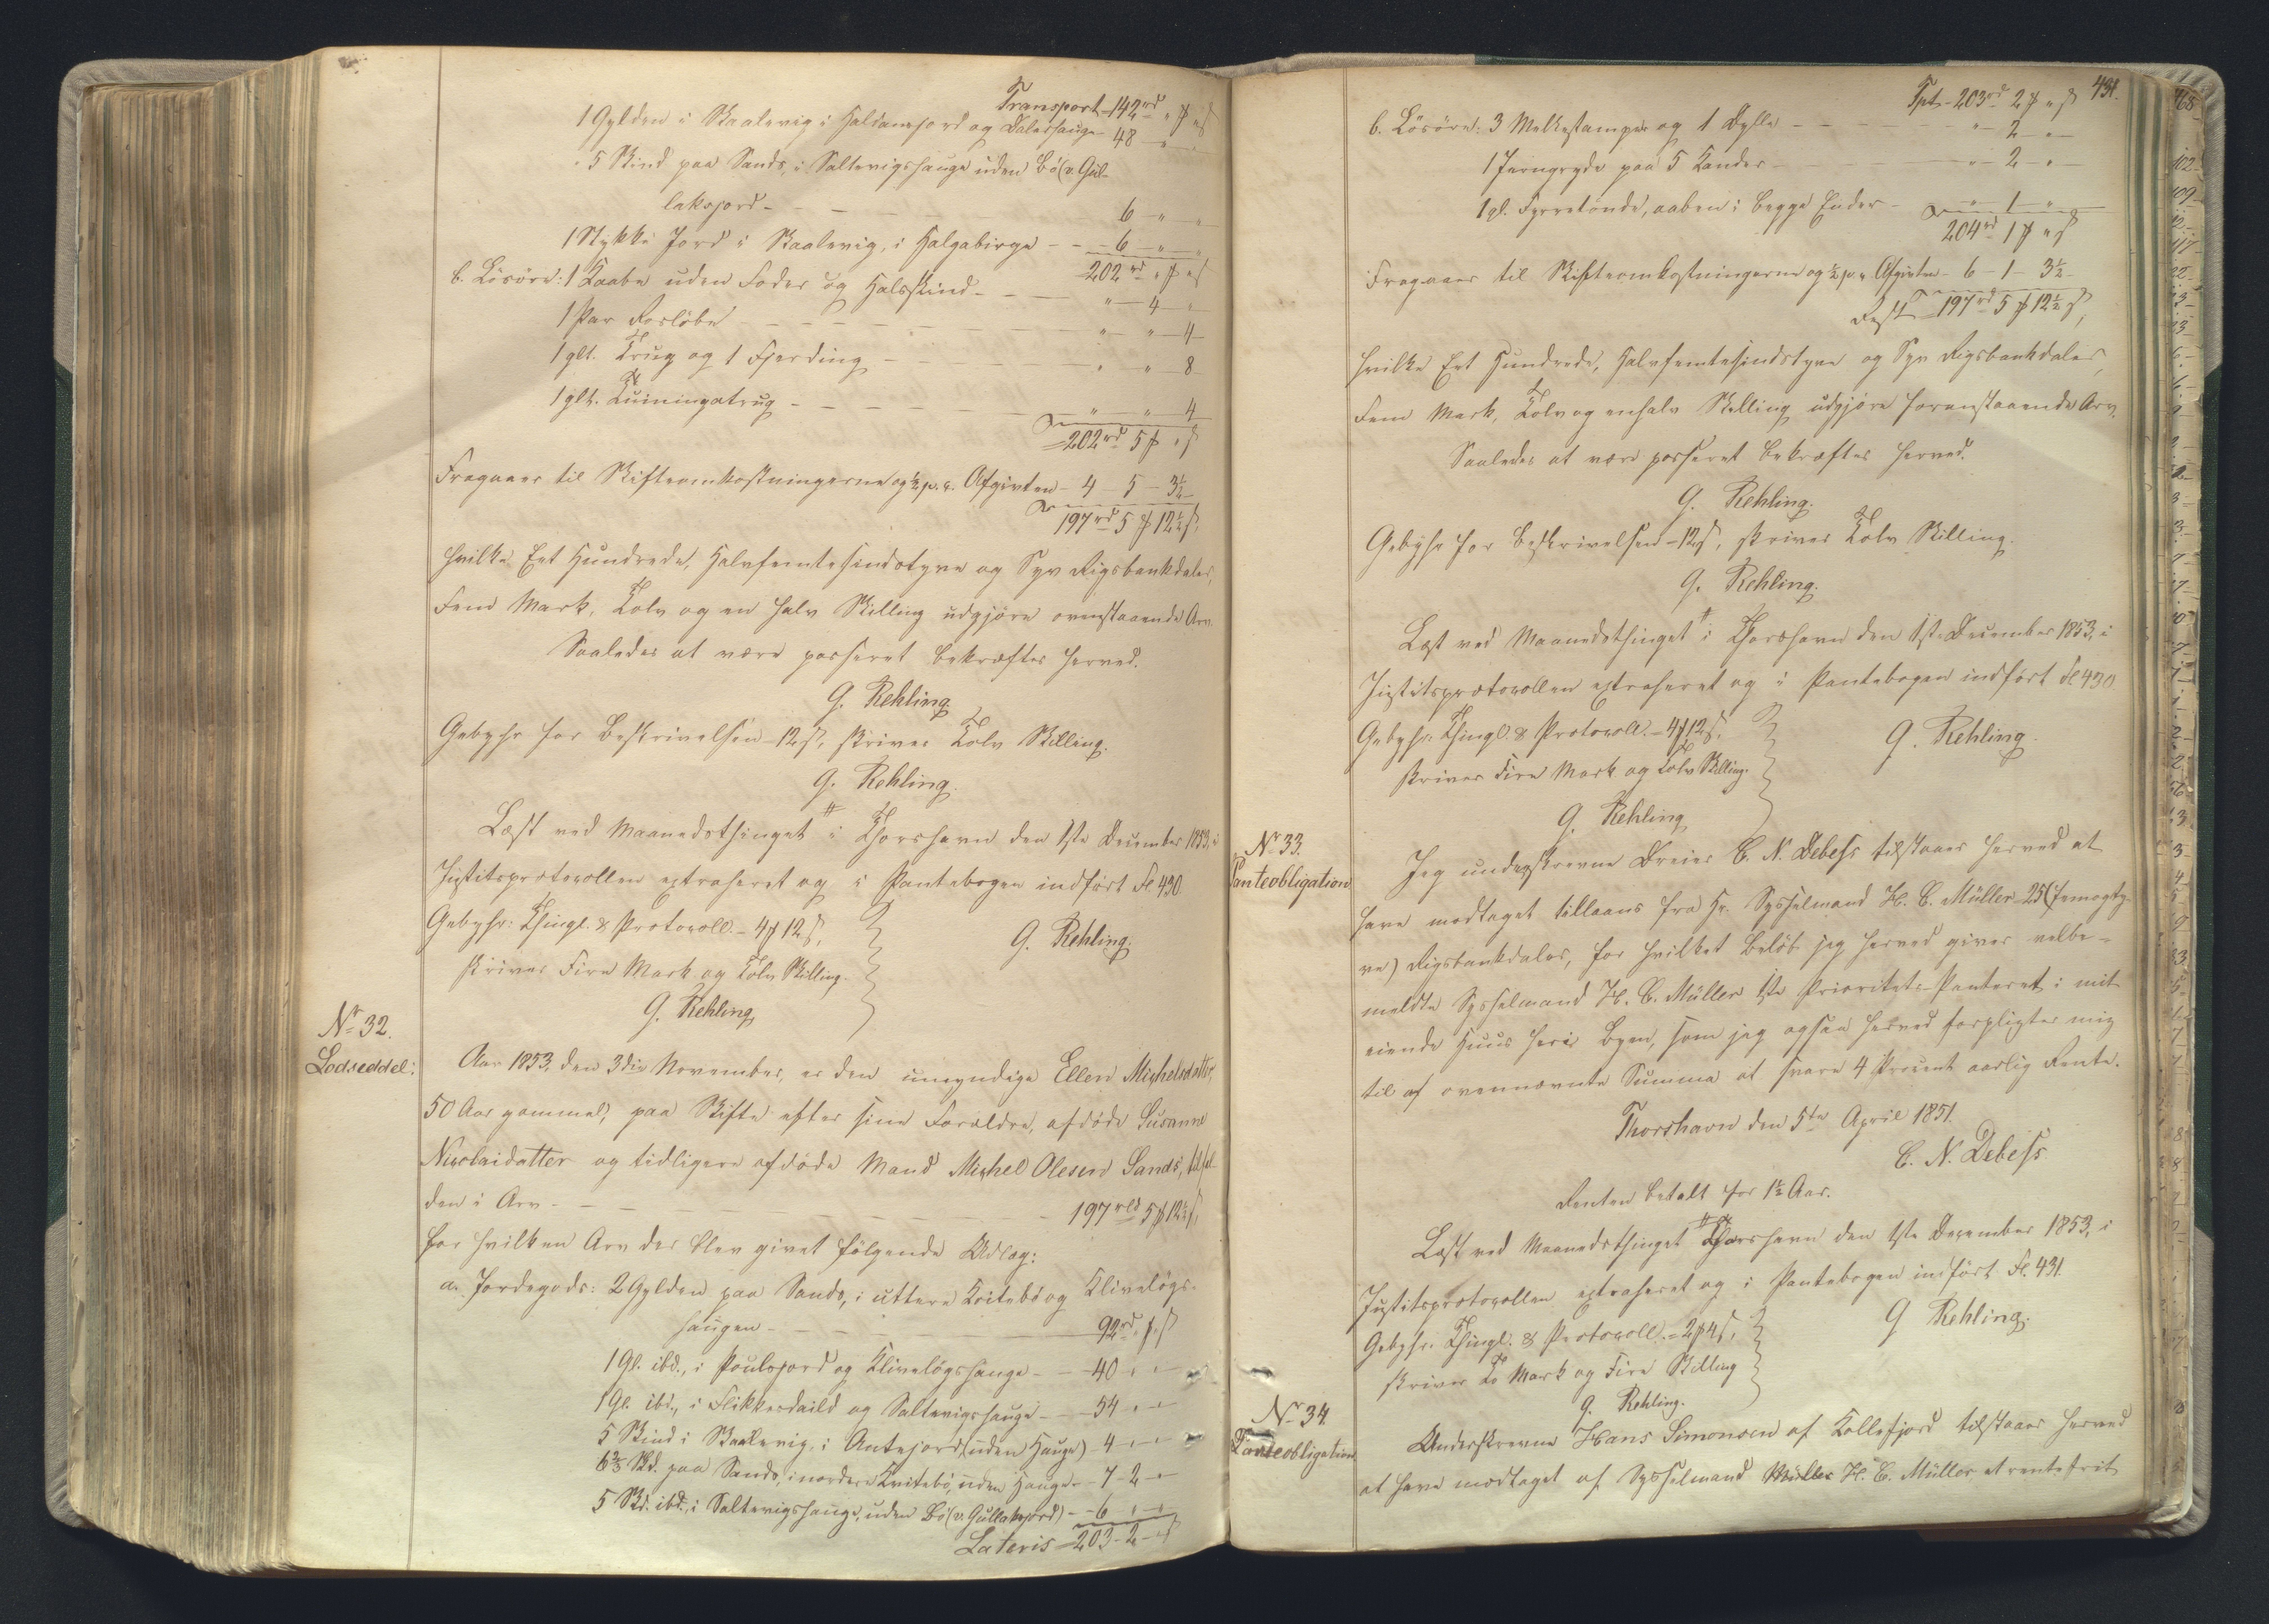 Transport - 142 rd „ ₰ „ ß
1 Gylden i Skaalevig i Halsanejord og Dalshauge - 48 „ „
5 Skind paa Sands, i Saltevigshauge uden Bö (v. Gul-
laksjord - 6 „ „
1 Stykke Jord i Skaalevig, i Halgabirge - 6 „ „
202 rd „ ₰ „ ß
b. Lösöre: 1 Kaabe uden Foder og Halsskind - „ 4 „
1 Par - „ „ 4
1 glt. Trug og 1 Fjerding - „ „ 8
1 glt. - „ „ 4
202 rd 5 ₰ „ ß
Fragaaer til Skifteomkostningerne og ½ p. c. Afgivten - 4 - 5 - 3½
197 rd 5 ₰ 12½ ß,
hvilke Eet Hundrede, Halvfemtesindstyve og Syv Rigsbankdaler,
Fem Mark, Tolv og en halv Skilling udgjöre ovenstaaende Arv.
Saaledes at være passeret bekræftes herved.
G. Rehling.
Gebyhr for Beskrivelsen - 12 ß, skriver Tolv Skilling.
G. Rehling.
Læst ved Maanedsthinget i Thorshavn den 1ste December 1853, i
Justitsprotocollen extraheret og i Pantebogen indfört Fl 430
Gebyhr: Thingl. & Protocoll. - 4 ₰ 12 ß,
skriver Fire Mark og Tolv Skilling.
G. Rehling.
G. Rehling
Nr 32.
Lodseddel:
Aar 1853, den 3die November, er den umyndige Ellen Michelsdatter,
50 Aar gammel, paa Skifte efter sine Forældre, afdöde Susanne
Nicolaidatter og tidligere afdöde Mand Michel Olesen Sands, tilfal-
den i Arv - 197 rbd 5 ₰ 12½ ß,
for hvilken Arv der blev givet fölgende Udlæg:
a. Jordegods: 2 Gylden paa Sands, i uttere Kvitebö og Klivelögs-
haugen - 92 rd „ ₰ „ ß
1 Gl. ibd., i Poulsjord og Klivelögshauge - 40 „ „
1 Gl. ibd., i Flikkerdaild og Saltevigshauge - 54 „ „
5 Skind i Skaalevig, i Antejord (uden Hauge) - 4 „ „
6⅔ Skd. paa Sands, i nordere Kvitebö, uden Hauge - 7 - 2 „
5 Skd. ibd. i Saltevigshauge, uden Bö (v. Gullaksjord) - 6 „ „
Lateris = 203 - 2 - „ ß
431.
Tpt. - 203 rd 2 ₰ „ ß
b. Lösöre: 3 Melkestamper og 1 Bylle - „ 2 „
1 Jerngryde paa 5 Kander - „ 2 „
1 gl. Fyrretönde, aaben i begge Ender - „ 1 „
204 rd 1 ₰ „ ß
Fragaaer til Skifteomkostningerne og ½ p. c. Afgivten - 6 - 1 - 3½
Rest 197 rd 5 ₰ 12½ ß,
hvilke Eet Hundrede, Halvfemtesindstyve og Syv Rigsbankdaler,
Fem Mark, Tolv og enhalv Skilling udgjöre foranstaaende Arv.
Saaledes at være passeret bekræftes herved.
G. Rehling.
Gebyhr for Beskrivelsen - 12 ß, skriver Tolv Skilling.
G. Rehling.
Læst ved Maanedsthinget i Thorshavn den 1ste December 1853, i
Justitsprotocollen extraheret og i Pantebogen indfört Fl 430
Gebyhr: Thingl. & Protocoll. - 4 ₰ 12 ß,
skriver Fire Mark og Tolv Skilling.
G. Rehling.
G. Rehling
Nr 33.
Panteobligation
Jeg underskrevne Dreier C. N. Debess tilstaaer herved at
have modtaget tillaans fra Hr. Sysselmand H. C. Müller 25 (femogty-
ve) Rigsbankdaler, for hvilket Belöb jeg herved giver velbe-
meldte Sysselmand H. C. Müller 1ste Prioritets Panteret i mit
eiende Huus her i Byen, som jeg ogsaa herved forpligter mig
til af ovennævnte Summa at svare 4 Procent aarlig Rente.
Thorshavn den 5te April 1851.
C. N. Debess
Renten betalt for 1½ Aar.
Læst ved Maanedsthinget Thorshavn den 1ste December 1853, i
Justitsprotocollen extraheret og i Pantebogen indfört Fl. 431.
Gebyhr: Thingl. & Protocoll. - 2 ₰ 4 ß,
skriver To Mark og Fire Skilling
G Rehling.
G. Rehling.
Nr 34.
Panteobligation
Underskrevne Hans Simonsen af Kollefjord tilstaaer herved
at have modtaget af Sysselmand Müller H. C. Müller et rentefrit